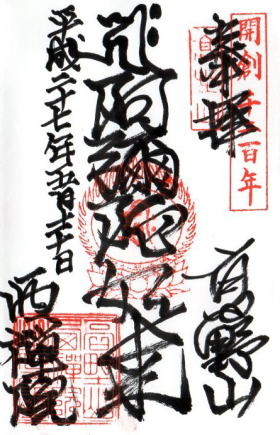 開創千二百年
奉拝
高野山
阿彌陀如来
平成二十七年五月二十日
西禪院